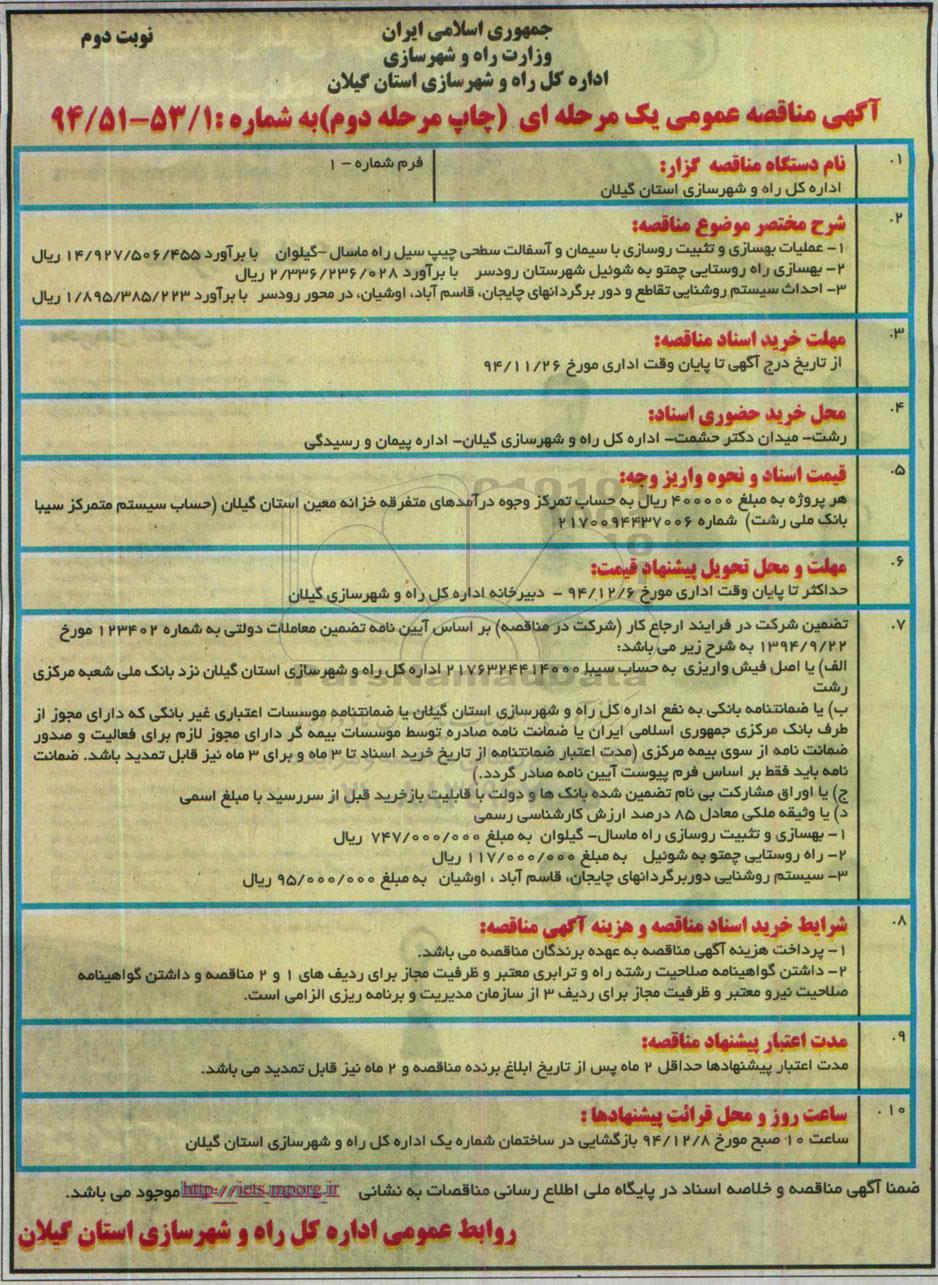 جمهوری اسلامی ایران
نوبت دوم
وزارت راه و شهرسازی
اداره کل راه و شهرسازی استان گیلان
آگهی مناقصه عمومی یک مرحله ای (چاپ مرحله دوم)به شماره :۹۴/۵۱-۵۳/۱
۱. نام دستگاه مناقصه گزار:
فرم شماره - ۱
اداره کل راه و شهرسازی استان گیلان
۲. شرح مختصر موضوع مناقصه:
۱- عملیات بهسازی و تثبیت روسازی با سیمان و آسفالت سطحی چیپ سیل راه ماسال -گیلوان با برآورد ۱۴/۹۲۷/۵۰۶/۴۵۵ ریال
۲- بهسازی راه روستایی چمتو به شوئیل شهرستان رودسر با برآورد ۲/۳۳۶/۲۳۶/۰۲۸ ریال
۳- احداث سیستم روشنایی تقاطع و دور برگردانهای چایجان، قاسم آباد، اوشیان، در محور رودسر با برآورد ۱/۸۹۵/۳۸۵/۲۲۳ ریال
۳. مهلت خرید اسناد مناقصه:
از تاریخ درج آگهی تا پایان وقت اداری مورخ ۹۴/۱۱/۲۶
۴. محل خرید حضوری اسناد:
رشت- میدان دکتر حشمت- اداره کل راه و شهرسازی گیلان- اداره پیمان و رسیدگی
۵. قیمت اسناد و نحوه واریز وجه:
هر پروژه به مبلغ ۴۰۰۰۰۰ ریال به حساب تمرکز وجوه درآمدهای متفرقه خزانه معین استان گیلان (حساب سیستم متمرکز سیبا
بانک ملی رشت) شماره ۲۱۷۰۰۹۴۴۳۷۰۰۶
۶. مهلت و محل تحویل پیشنهاد قیمت:
حداکثر تا پایان وقت اداری مورخ ۹۴/۱۲/۶ - دبیرخانه اداره کل راه و شهرسازی گیلان
۷. تضمین شرکت در فرایند ارجاع کار (شرکت در مناقصه) بر اساس آیین نامه تضمین معاملات دولتی به شماره ۱۲۳۴۰۲ مورخ
۱۳۹۴/۹/۲۲ به شرح زیر می باشد:
الف) یا اصل فیش واریزی به حساب سیبا ۲۱۷۶۳۲۴۴۱۴۰۰۰ اداره کل راه و شهرسازی استان گیلان نزد بانک ملی شعبه مرکزی
رشت
ب) یا ضمانتنامه بانکی به نفع اداره کل راه و شهرسازی استان گیلان یا ضمانتنامه موسسات اعتباری غیر بانکی که دارای مجوز از
طرف بانک مرکزی جمهوری اسلامی ایران یا ضمانت نامه صادره توسط موسسات بیمه گر دارای مجوز لازم برای فعالیت و صدور
ضمانت نامه از سوی بیمه مرکزی (مدت اعتبار ضمانتنامه از تاریخ خرید اسناد تا ۳ ماه و برای ۳ ماه نیز قابل تمدید باشد. ضمانت
نامه باید فقط بر اساس فرم پیوست آیین نامه صادر گردد.)
ج) یا اوراق مشارکت بی نام تضمین شده بانک ها و دولت با قابلیت بازخرید قبل از سررسید با مبلغ اسمی
د) یا وثیقه ملکی معادل ۸۵ درصد ارزش کارشناسی رسمی
۱- بهسازی و تثبیت روسازی راه ماسال- گیلوان به مبلغ ۷۴۷/۰۰۰/۰۰۰ ریال
۲- راه روستایی چمتو به شوئیل به مبلغ ۱۱۷/۰۰۰/۰۰۰ ریال
۳- سیستم روشنایی دوربرگردانهای چایجان، قاسم آباد ، اوشیان به مبلغ ۹۵/۰۰۰/۰۰۰ ریال
۸. شرایط خرید اسناد مناقصه و هزینه آگهی مناقصه:
۱- پرداخت هزینه آگهی مناقصه به عهده برندگان مناقصه می باشد.
۲- داشتن گواهینامه صلاحیت رشته راه و ترابری معتبر و ظرفیت مجاز برای ردیف های ۱ و ۲ مناقصه و داشتن گواهینامه
صلاحیت نیرو معتبر و ظرفیت مجاز برای ردیف ۳ از سازمان مدیریت و برنامه ریزی الزامی است.
۹. مدت اعتبار پیشنهاد مناقصه:
مدت اعتبار پیشنهادها حداقل ۲ ماه پس از تاریخ ابلاغ برنده مناقصه و ۲ ماه نیز قابل تمدید می باشد.
۱۰. ساعت روز و محل قرائت پیشنهادها :
ساعت ۱۰ صبح مورخ ۹۴/۱۲/۸ بازگشایی در ساختمان شماره یک اداره کل راه و شهرسازی استان گیلان
ضمنا آگهی مناقصه و خلاصه اسناد در پایگاه ملی اطلاع رسانی مناقصات به نشانی http://iets.mporg.ir موجود می باشد.
روابط عمومی اداره کل راه و شهرسازی استان گیلان
ParsNamadData